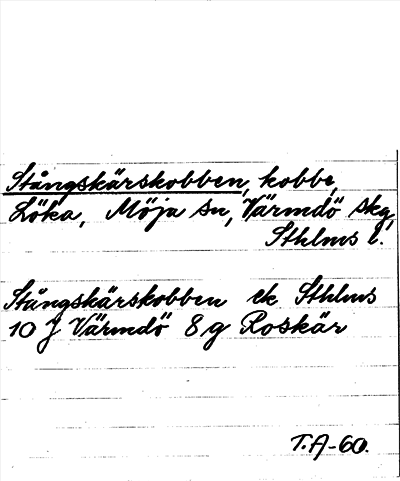 Stångskärskobben, kobbe,
Löka, Möja sn, Värmdö skg,
Sthlms l.
Stångskärskobben ek Sthlms
10 J Värmdö 8 g Roskär
T.A-60.